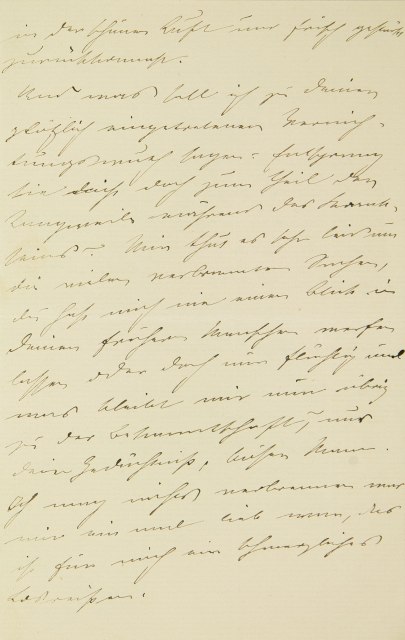 in der schönen Luft nur frisch gestärkt
zurückkommst.
Und was soll ich zu Deinem
plötzlich eingetretenen Vernich-
tungswuth sagen? Entsprang
sie doch zum Theil der
Langweile während des Krank-
seins? Mir thut es sehr leid um
die vielen verbrannten Sachen,
du hast mich nie einen Blick in
Deinen früheren Menschen werfen
lassen oder doch nur flüchtig und
was bleibt mir nun übrig
zu der Bekanntschaft, nur
dein Gedächtniß, lieber Mann.
Ich mag nichts verbrennen was
mir ein mal lieb war, das
ist für mich ein schmerzliches
Losreißen.